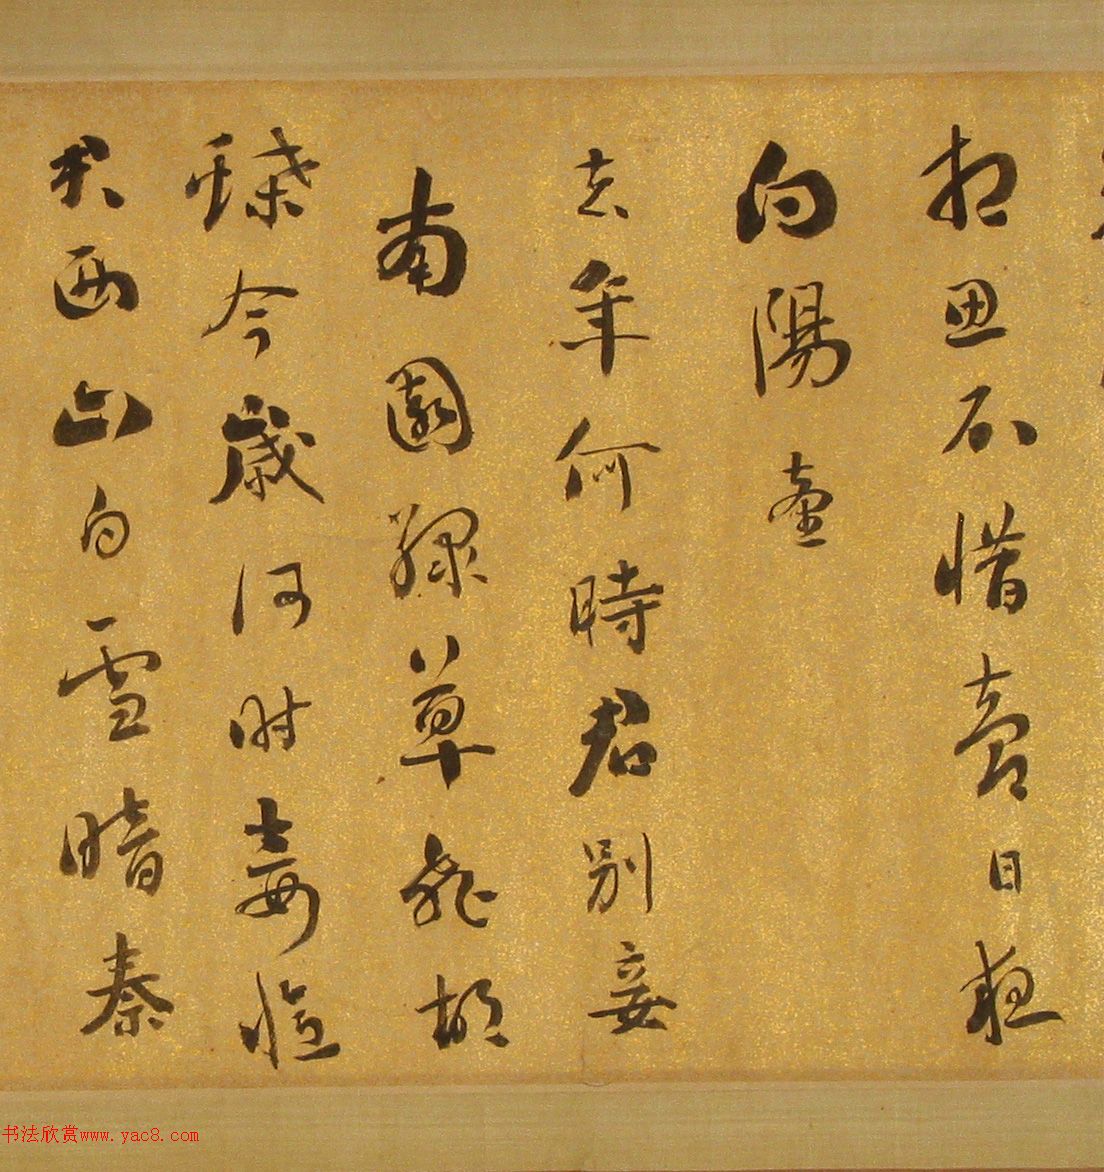 相思不惜夢日夜
向陽臺
去年何時君別妾
南園綠草飛胡
蝶今歲何時妾憶
君西山白雪暗秦
书法欣赏www.yac8.com